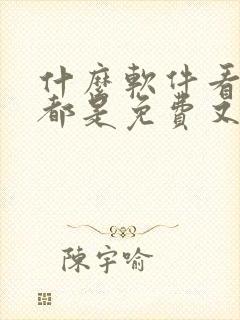 什麼軟件看
都是免費又
陳宇喻